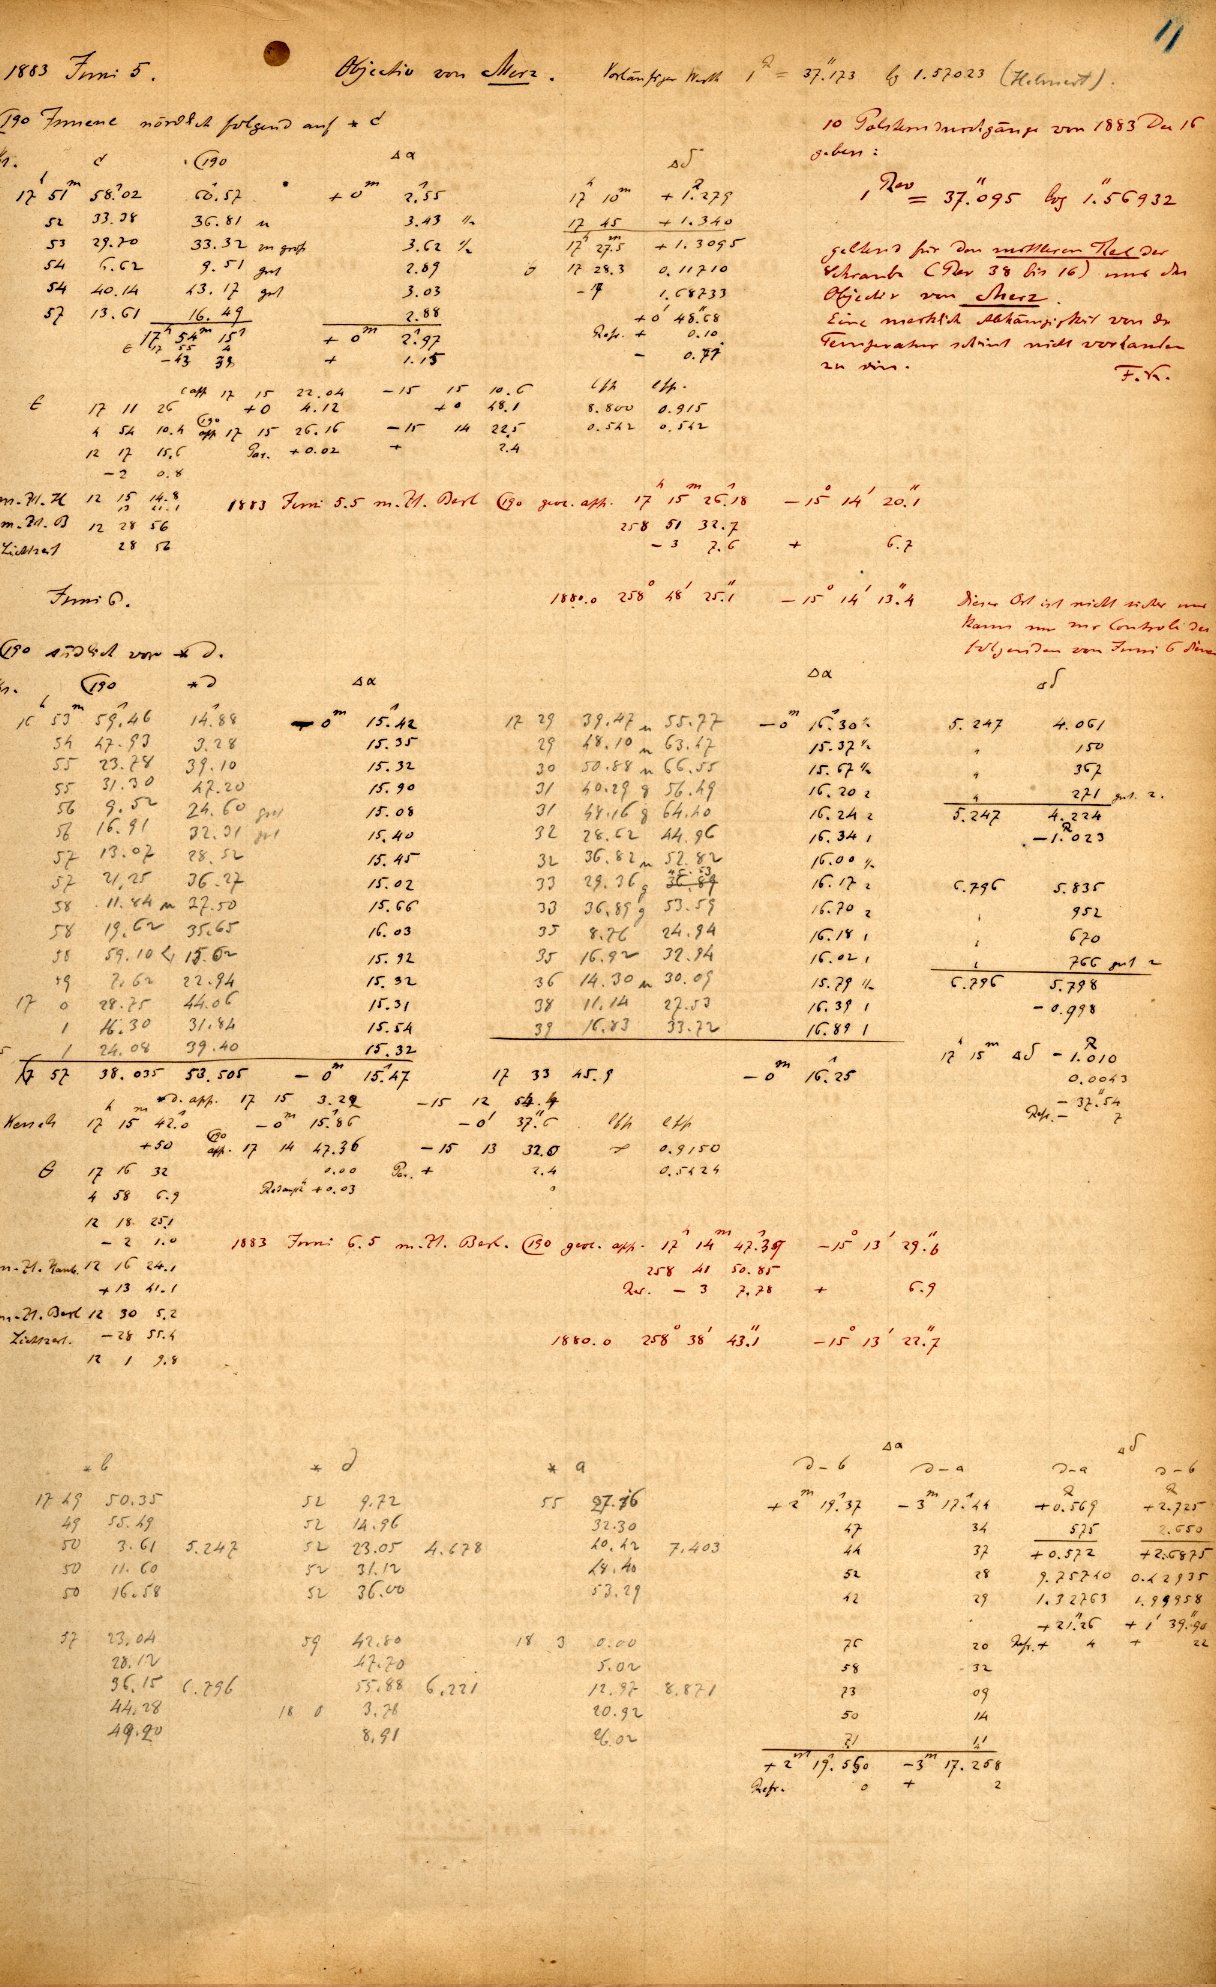 11
1883 Juni 5. Objectiv von Merz. Vorläufiger Werth 1R = 37."173 lg 1.57023 (Helmert).
(190) Ismene nördlich folgend auf * c
10 Polsterndurchgänge von 1883 Dec 16
geben:
1 Rev = 37."095 log 1."56932
geltend für den mittleren Theil der
Schraube (Rev 38 bis 16) und das
Objectiv von Merz.
Eine merklich Abhängigkeit von der
Temperatur scheint nicht vorhanden
zu sein.
F.K.
c (190) Δα Δδ
17h 51m 58.s02 60.s57 + 0m 2.s55 17h 10m + 1.R279
52 33.38 36.81 n 3.43 ½ 17 45 + 1.340
53 29.70 33.32 zu gross 3.62 ½ 17h 27.m5 + 1.3095
54 6.62 9.51 gut 2.89 17 28.3 0.11710
54 40.14 43.17 gut 3.03 1.68733
57 13.61 16.49 2.88 + 0' 48."68
17h 54m 15s + 0m 2.s97 Refr. + 0.10
-43 39 + 1.15 - 0.77
c app 17 15 22.04 -15 15 10.6 lfp lfp.
17 11 26 +0 4.12 +0 48.1 8.800 0.915
4 54 10.4 (190) app 17 15 26.16 -15 14 22.5 0.542 0.542
12 17 15.6 Par. +0.02 + 2.4
-2 0.8
m.Zt.H 12 15 14.8
13 41.1
1883 Juni 5.5 m.Zt. Berl (190) geoc. app. 17h 15m 26.s18 -15° 14' 20."1
m.Zt.B 12 28 56 258 51 32.7
Lichtzeit 28 56 -3 7.6 + 6.7
Juni 6. 1880.0 258° 48' 25."1 -15° 14' 13."4
Dieser Ort ist nicht sicher und
kann nur zur Controle des
folgenden von Juni 6 dienen
(190) südlich vor * d.
(190) * d Δα Δα Δδ
16h 53m 59.s46 14.s88 - 0m 15.s42 17 29 39.47 n 55.77 -0m 16.s30 ½ 5.247 4.061
54 47.93 3.28 15.35 29 48.10 n 63.47 15.37 ½ " 150
55 23.78 39.10 15.32 30 50.88 n 66.55 15.67 ½ " 367
55 31.30 47.20 15.90 31 40.29 g 56.49 16.20 2 " 271 gut. 2.
56 9.52 24.60 gut 15.08 31 48.16 g 64.40 16.24 2 5.247 4.224
56 16.91 32.31 gut 15.40 32 28.62 44.96 16.34 1 -1.R023
57 13.07 28.52 15.45 32 36.82 n 52.82 16.00 ½
57 21.25 36.27 15.02 33 29.36 g 45.53 16.17 2 6.796 5.835
58 11.84 n 27.50 15.66 33 36.89 g 53.59 16.70 2 952
58 19.62 35.65 16.03 35 8.76 24.94 16.18 1 670
58 59.10 15.02 15.92 35 16.92 32.94 16.02 1 766 gut 2
59 7.62 22.94 15.32 36 14.30 n 30.09 15.79 ½ 6.796 5.798
17 0 28.75 44.06 15.31 38 11.14 27.53 16.39 1 - 0.998
1 16.30 31.84 15.54 39 16.83 33.72 16.89 1
1 24.08 39.40 15.32 17h 15m Δδ - 1.R010
57 38.035 53.505 - 0m 15.s47 17 33 45.9 -0m 16.s25 0.0043
* d. app. 17 15 3.22 -15 12 54.4 - 37."54
17h 15m 42.s0 -0m 15.s86 -0' 37."6 lfp lfp Refr. - 7
+50 (190) app. 17 14 47.36 -15 13 32.0 0.9150
θ 17 16 32 0.00 Par. + 2.4 0.5424
4 58 6.9 +0.03
12 18 25.1
-2 1.0 1883 Juni 6.5 m.Zt. Berl. (190) geoc. app. 17h 14m 47.s39 -15° 13' 29."6
12 16 24.1 258 41 50.85
+13 41.1 Red. - 3 7.78 + 6.9
m.Zt. Berl 12 30 5.2
Lichtzeit. -28 55.4 1880.0 258° 38' 43."1 -15° 13' 22."7
12 1 9.8
Δα Δδ
* b * d * a d-b d-a d-a d-b
17 49 50.35 52 9.72 55 27.16 +2m 19.s37 -3m 17.s44 +0.R569 +2.R725
49 55.49 52 14.96 32.30 47 34 575 2.650
50 3.61 5.247 52 23.05 4.678 40.42 7.403 44 37 +0.572 +2.6875
50 11.60 52 31.12 48.40 52 28 9.75740 0.42935
50 16.58 52 36.00 53.29 42 29 1.32763 1.99958
+21."26 +1' 39."90
57 23.04 59 42.80 18 3 0.00 76 20 Refr. + 4 + 22
28.12 47.70 5.02 58 32
36.15 6.796 55.88 6.221 12.97 8.871 73 09
44.28 18 0 3.78 20.92 50 14
49.20 8.91 26.02 71 11
+2m 19.s550 -3m 17.258
Refr. 0 + 2